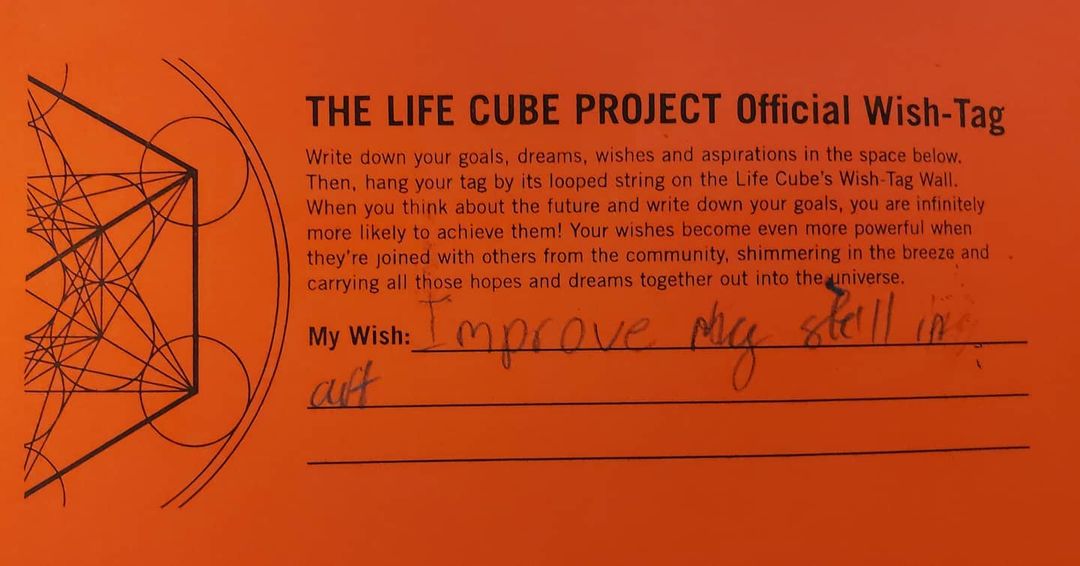 THE LIFE CUBE PROJECT Official Wish-Tag
Write down your goals, dreams, wishes and aspirations in the space below.
Then, hang your tag by its looped string on the Life Cube's Wish-Tag Wall.
When you think about the future and write down your goals, you are infinitely
more likely to achieve them! Your wishes become even more powerful when
they're joined with others from the community, shimmering in the breeze and
carrying all those hopes and dreams together out into the universe.
My Wish: Improve my skill in
art